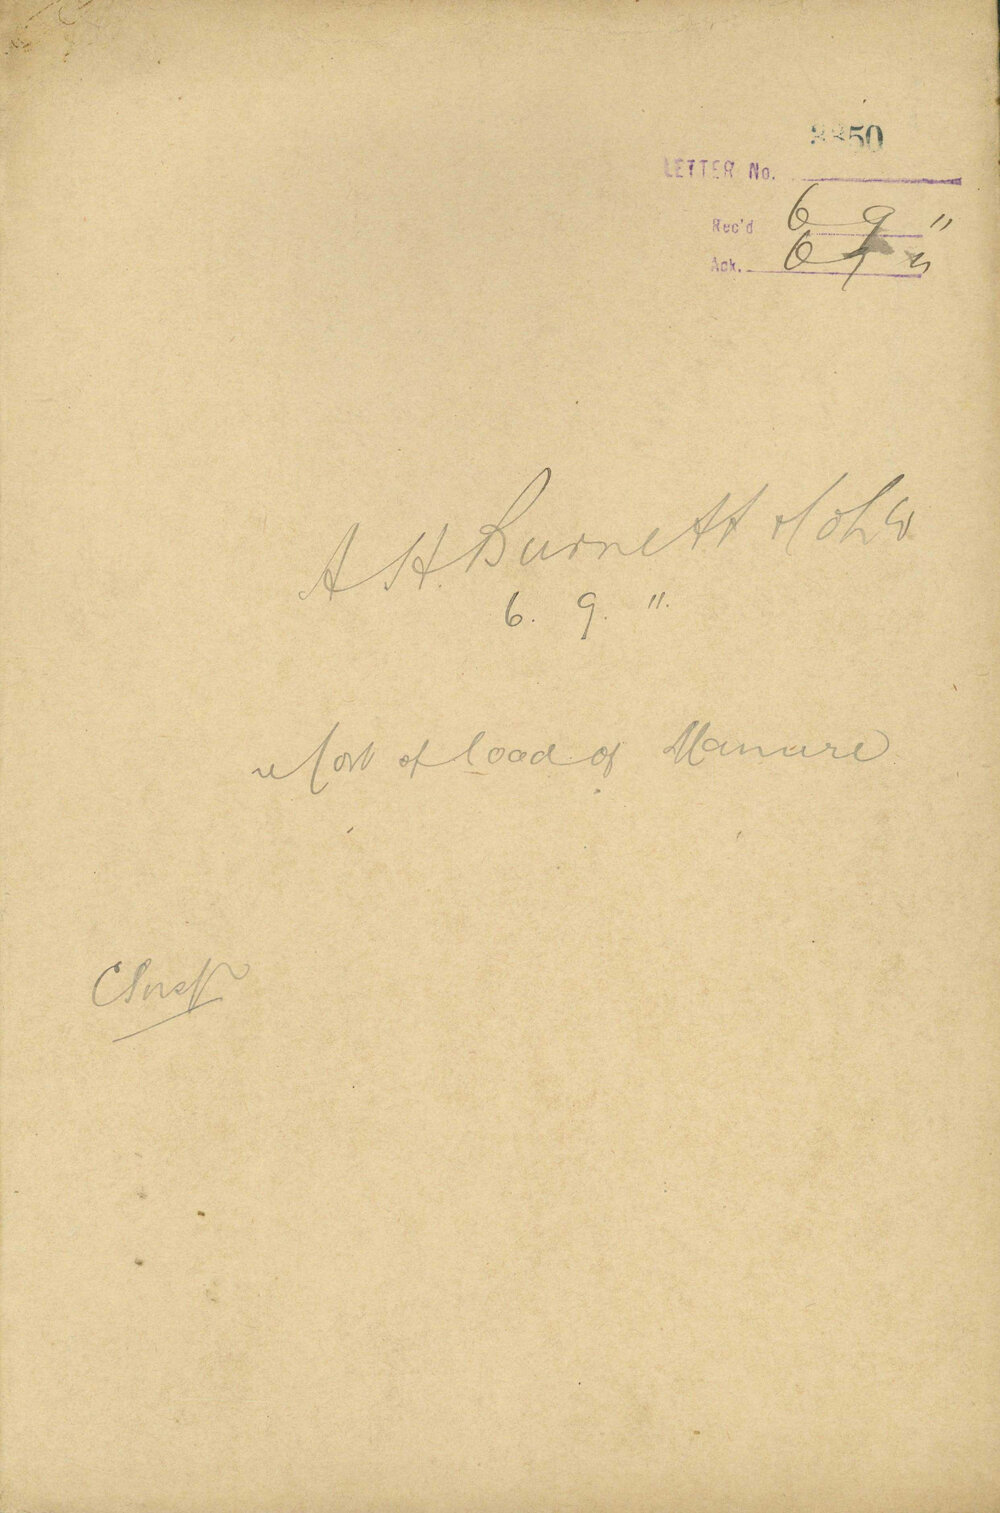 50
LETTER No.
Rec'd 6 9 11
Ack. 6 9 11
A H. Burnett
6. 9. 11.
re Cost of load of Manure